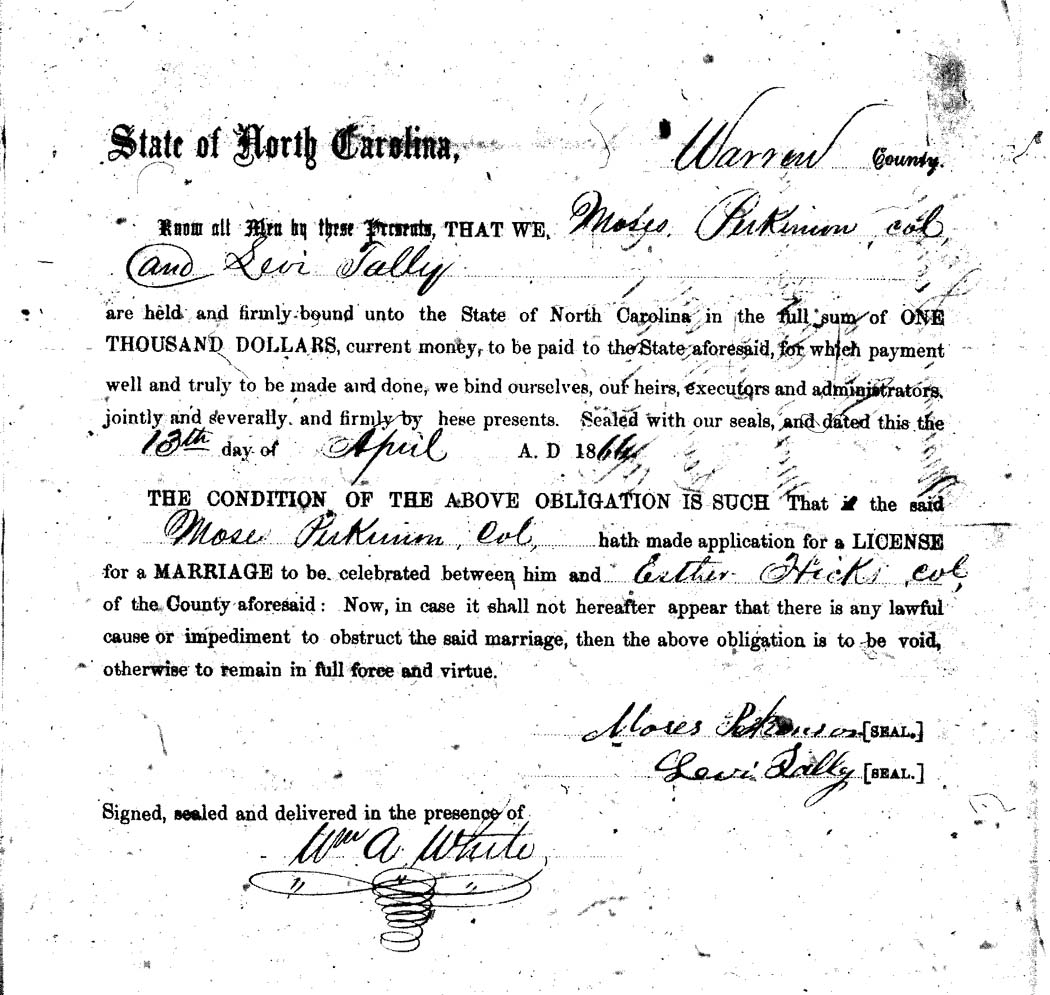 State of North Carolina, Warren County.
Know all Men by these Presents, THAT WE, Moses Perkinson, col,
and Levi Tally
are held and firmly bound unto the State of North Carolina in the full sum of ONE
THOUSAND DOLLARS, current money, to be paid to the State aforesaid, for which payment
well and truly to be made and done, we bind ourselves, our heirs, executors and administrators,
jointly and severally. and firmly by hese presents. Sealed with our seals, and dated this the
13th day of April A. D 186
THE CONDITION OF THE ABOVE OBLIGATION IS SUCH That if the said
Mose Perkinson, Col, hath made application for a LICENSE
for a MARRIAGE to be celebrated between him and Esther Hicks col,
of the County aforesaid: Now, in case it shall not hereafter appear that there is any lawful
cause or impediment to obstruct the said marriage, then the above obligation is to be void,
otherwise to remain in full force and virtue.
Moses Perkinson [SEAL.]
Levi Tally [SEAL.]
Signed, sealed and delivered in the presence of
Wm A White,